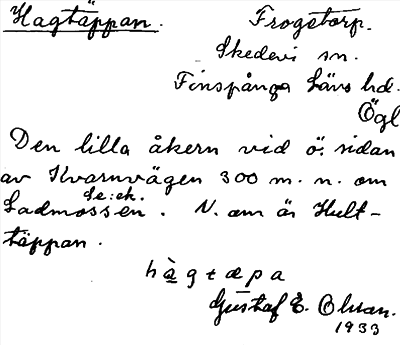 Hagtäppan. Frogstorp.
Skedevi sn.
Finspånga Läns hd.
Ögl
Den lilla åkern vid ö. sidan
av Kvarnvägen 300 m. n. om
Se: ek.
Ladmossen. N. om är Hult-
täppan.
hàgtæpa
Gustaf E. Olsson.
1933